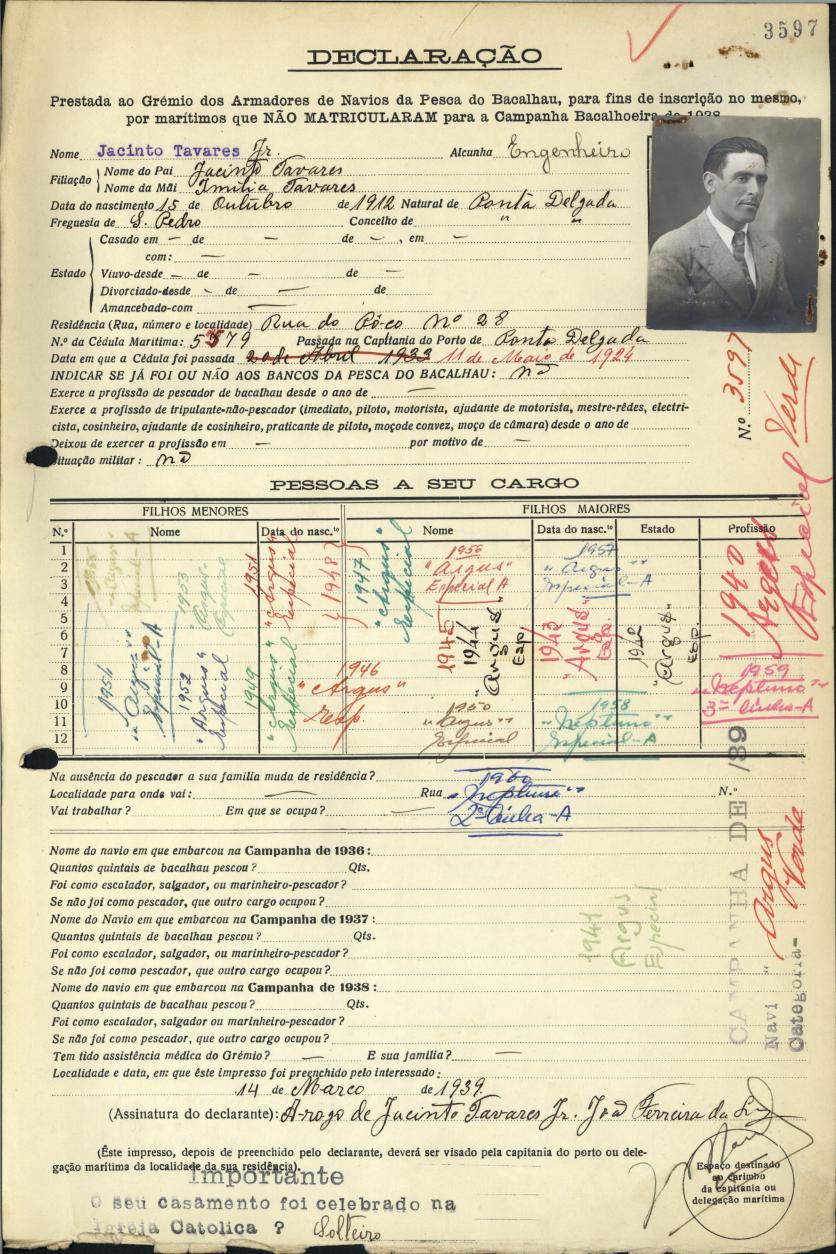 3597
DECLARAÇÃO
Prestada ao Grémio dos Armadores de Navios da Pesca do Bacalhau, para fins de inscrição no mesmo,
por marítimos que NÃO MATRICULARAM para a Campanha Bacalhoeira de 1938
Nome Jacinto Tavares Jr. Alcunha Engenheiro
Filiação Nome do Pai Jacinto Tavares
Nome da Mãi Imilia Tavares
Data do nascimento 15 de Outubro de 1912 Natural de Ponta Delgada
Freguesia de S. Pedro Concelho de " "
Estado Casado em — de — de — , em —
com: —
Viuvo-desde — de — de —
Divorciado-desde — de — de
Amancebado-com —
Residência (Rua, número e localidade) Rua do Pôço Nº 28
N.º da Cédula Marítima: 5579 Passada na Capitania do Porto de Ponta Delgada
Data em que a Cédula foi passada 20 de Abril 1933 11 de Maio de 1924
INDICAR SE JÁ FOI OU NÃO AOS BANCOS DA PESCA DO BACALHAU: nã
Exerce a profissão de pescador de bacalhau desde o ano de —
Exerce a profissão de tripulante-não-pescador (imediato, piloto, motorista, ajudante de motorista, mestre-rêdes, electri-
cista, cosinheiro, ajudante de cosinheiro, praticante de piloto, moço de convez, moço de câmara) desde o ano de —
Deixou de exercer a profissão em — por motivo de —
Situação militar: nã
N.º 3597
Verde
PESSOAS A SEU CARGO
FILHOS MENORES FILHOS MAIORES
N.º Nome Data do nasc.to Nome Data do nasc.to Estado Profissão
1
2
3
4
5
6
7
8
9
10
11
12
1955 "Argus" Especial-A
1953 "Argus" Especial
1951 "Argus" Especial
1948
1947 "Argus" Especial
1956 "Argus" Especial A
1957 "Argus" Especial-A
1940 Argus Especial
1954 "Argus" Especial-A
1952 "Argus" Especial
1949 "Argus" Especial
1946 "Argus" Esp.
1945
1944 "Argus" Esp
1943 "Argus" Esp.
1942 "Argus" Esp.
1950 "Argus" Especial
1958 "Neptuno" Especial-A
1959 "Neptuno" 3ª linha-A
Na ausência do pescador a sua família muda de residência?
Localidade para onde vai: — Rua N.º
Vai trabalhar? Em que se ocupa? —
1960
"Neptuno"
2ª linha-A
Nome do navio em que embarcou na Campanha de 1936:
Quantos quintais de bacalhau pescou? Qts.
Foi como escalador, salgador, ou marinheiro-pescador?
Se não foi como pescador, que outro cargo ocupou?
Nome do Navio em que embarcou na Campanha de 1937:
Quantos quintais de bacalhau pescou? Qts.
Foi como escalador, salgador, ou marinheiro-pescador?
Se não foi como pescador, que outro cargo ocupou?
Nome do navio em que embarcou na Campanha de 1938
Quantos quintais de bacalhau pescou? Qts.
Foi como escalador, salgador ou marinheiro-pescador?
Se não foi como pescador, que outro cargo ocupou?
1941
Argus
Especial
CAMPANHA DE /39
Navi " Argus
Categoria- Verde
Tem tido assistência médica do Grémio? — E sua família? —
Localidade e data, em que êste impresso foi preenchido pelo interessado:
14 de Março de 1939.
(Assinatura do declarante): A-rogo de Jacinto Tavares Jr. Joã Ferreira da
(Êste impresso, depois de preenchido pelo declarante, deverá ser visado pela capitania do porto ou dele-
gação marítima da localidade da sua residência).
Espaço destinado
ao carimbo
da capitania ou
delegação marítima
Importante
O seu casamento foi celebrado na
Igreja Catolica ? Solteiro